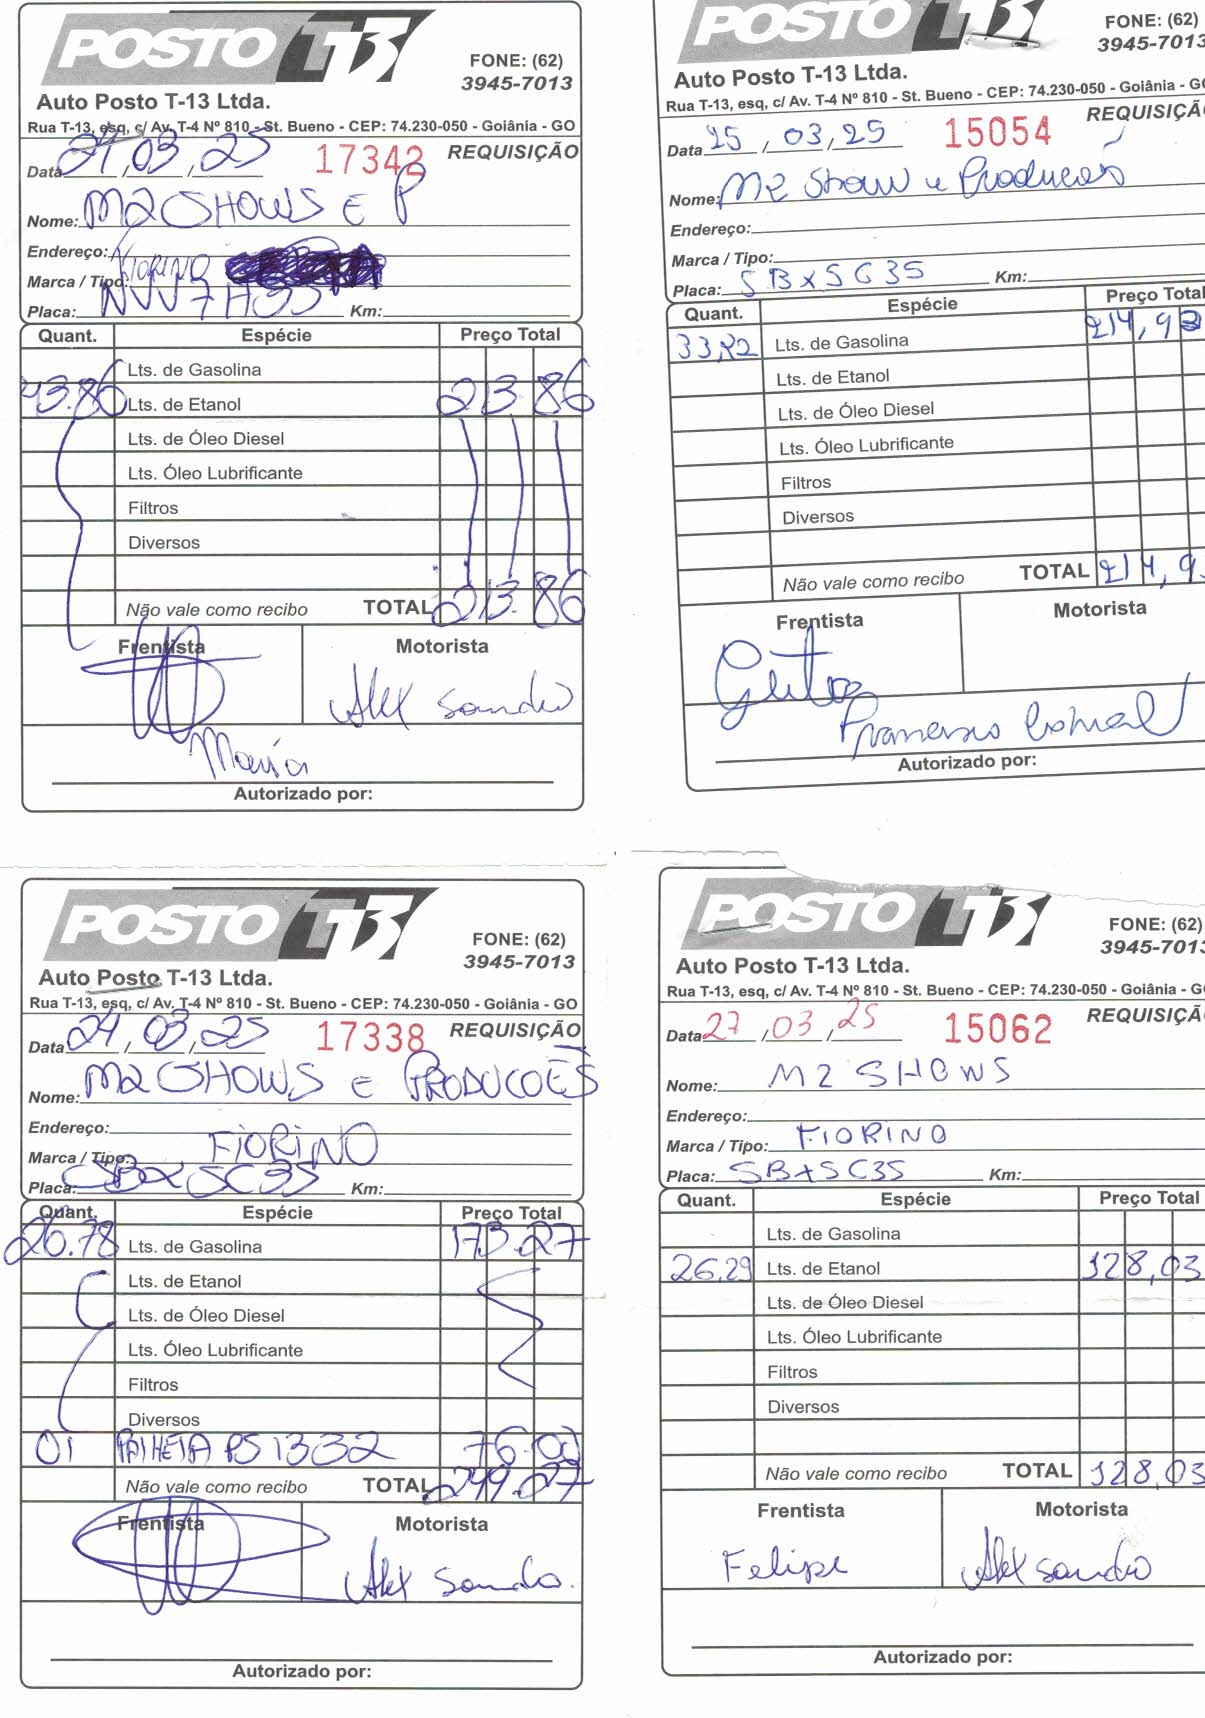 POSTO T-13
FONE: (62)
3945-7013
Auto Posto T-13 Ltda.
Rua T-13, esq, c/ Av. T-4 Nº 810 - St. Bueno - CEP: 74.230-050 - Goiânia - GO
Data 24, 03, 25 17342 REQUISIÇÃO
Nome: M2 SHOWS E P
Endereço:
Marca / Tipo: FIORINO
Placa: NVV7H35 Km:
Quant. Espécie Preço Total
Lts. de Gasolina
43.86 Lts. de Etanol 213.86
Lts. de Óleo Diesel
Lts. Óleo Lubrificante
Filtros
Diversos
Não vale como recibo TOTAL 213.86
Frentista Motorista
Alex sandro
Maria
Autorizado por:
POSTO T-13
FONE: (62)
3945-7013
Auto Posto T-13 Ltda.
Rua T-13, esq, c/ Av. T-4 Nº 810 - St. Bueno - CEP: 74.230-050 - Goiânia - GO
REQUISIÇÃO
Data 25 / 03, 25 15054
Nome: M2 Show e Producoes
Endereço:
Marca / Tipo:
Placa: SBX5C35 Km:
Quant. Espécie Preço Total
33,22 Lts. de Gasolina 214,93
Lts. de Etanol
Lts. de Óleo Diesel
Lts. Óleo Lubrificante
Filtros
Diversos
Não vale como recibo TOTAL 214,9
Frentista Motorista
Autorizado por:
POSTO T-13
FONE: (62)
3945-7013
Auto Posto T-13 Ltda.
Rua T-13, esq, c/ Av. T-4 Nº 810 - St. Bueno - CEP: 74.230-050 - Goiânia - GO
Data 24, 03, 25 17338 REQUISIÇÃO
Nome: M2 SHOWS E PRODUCOES
Endereço:
Marca / Tipo: FIORINO
Placa: SBX5C35 Km:
Quant. Espécie Preço Total
26.78 Lts. de Gasolina 173.27
Lts. de Etanol
Lts. de Óleo Diesel
Lts. Óleo Lubrificante
Filtros
Diversos
01 PALHETA PS1332 76.00
Não vale como recibo TOTAL 249.27
Frentista Motorista
Alex sandro.
Autorizado por:
POSTO T-13
FONE: (62)
3945-7013
Auto Posto T-13 Ltda.
Rua T-13, esq, c/ Av. T-4 Nº 810 - St. Bueno - CEP: 74.230-050 - Goiânia - GO
Data 27 / 03 / 25 15062 REQUISIÇÃO
Nome: M2 SHOWS
Endereço:
Marca / Tipo: FIORINO
Placa: SBX5C35 Km:
Quant. Espécie Preço Total
Lts. de Gasolina
26,29 Lts. de Etanol 128,03
Lts. de Óleo Diesel
Lts. Óleo Lubrificante
Filtros
Diversos
Não vale como recibo TOTAL 128,03
Frentista Motorista
Felipe Alex sandro
Autorizado por: